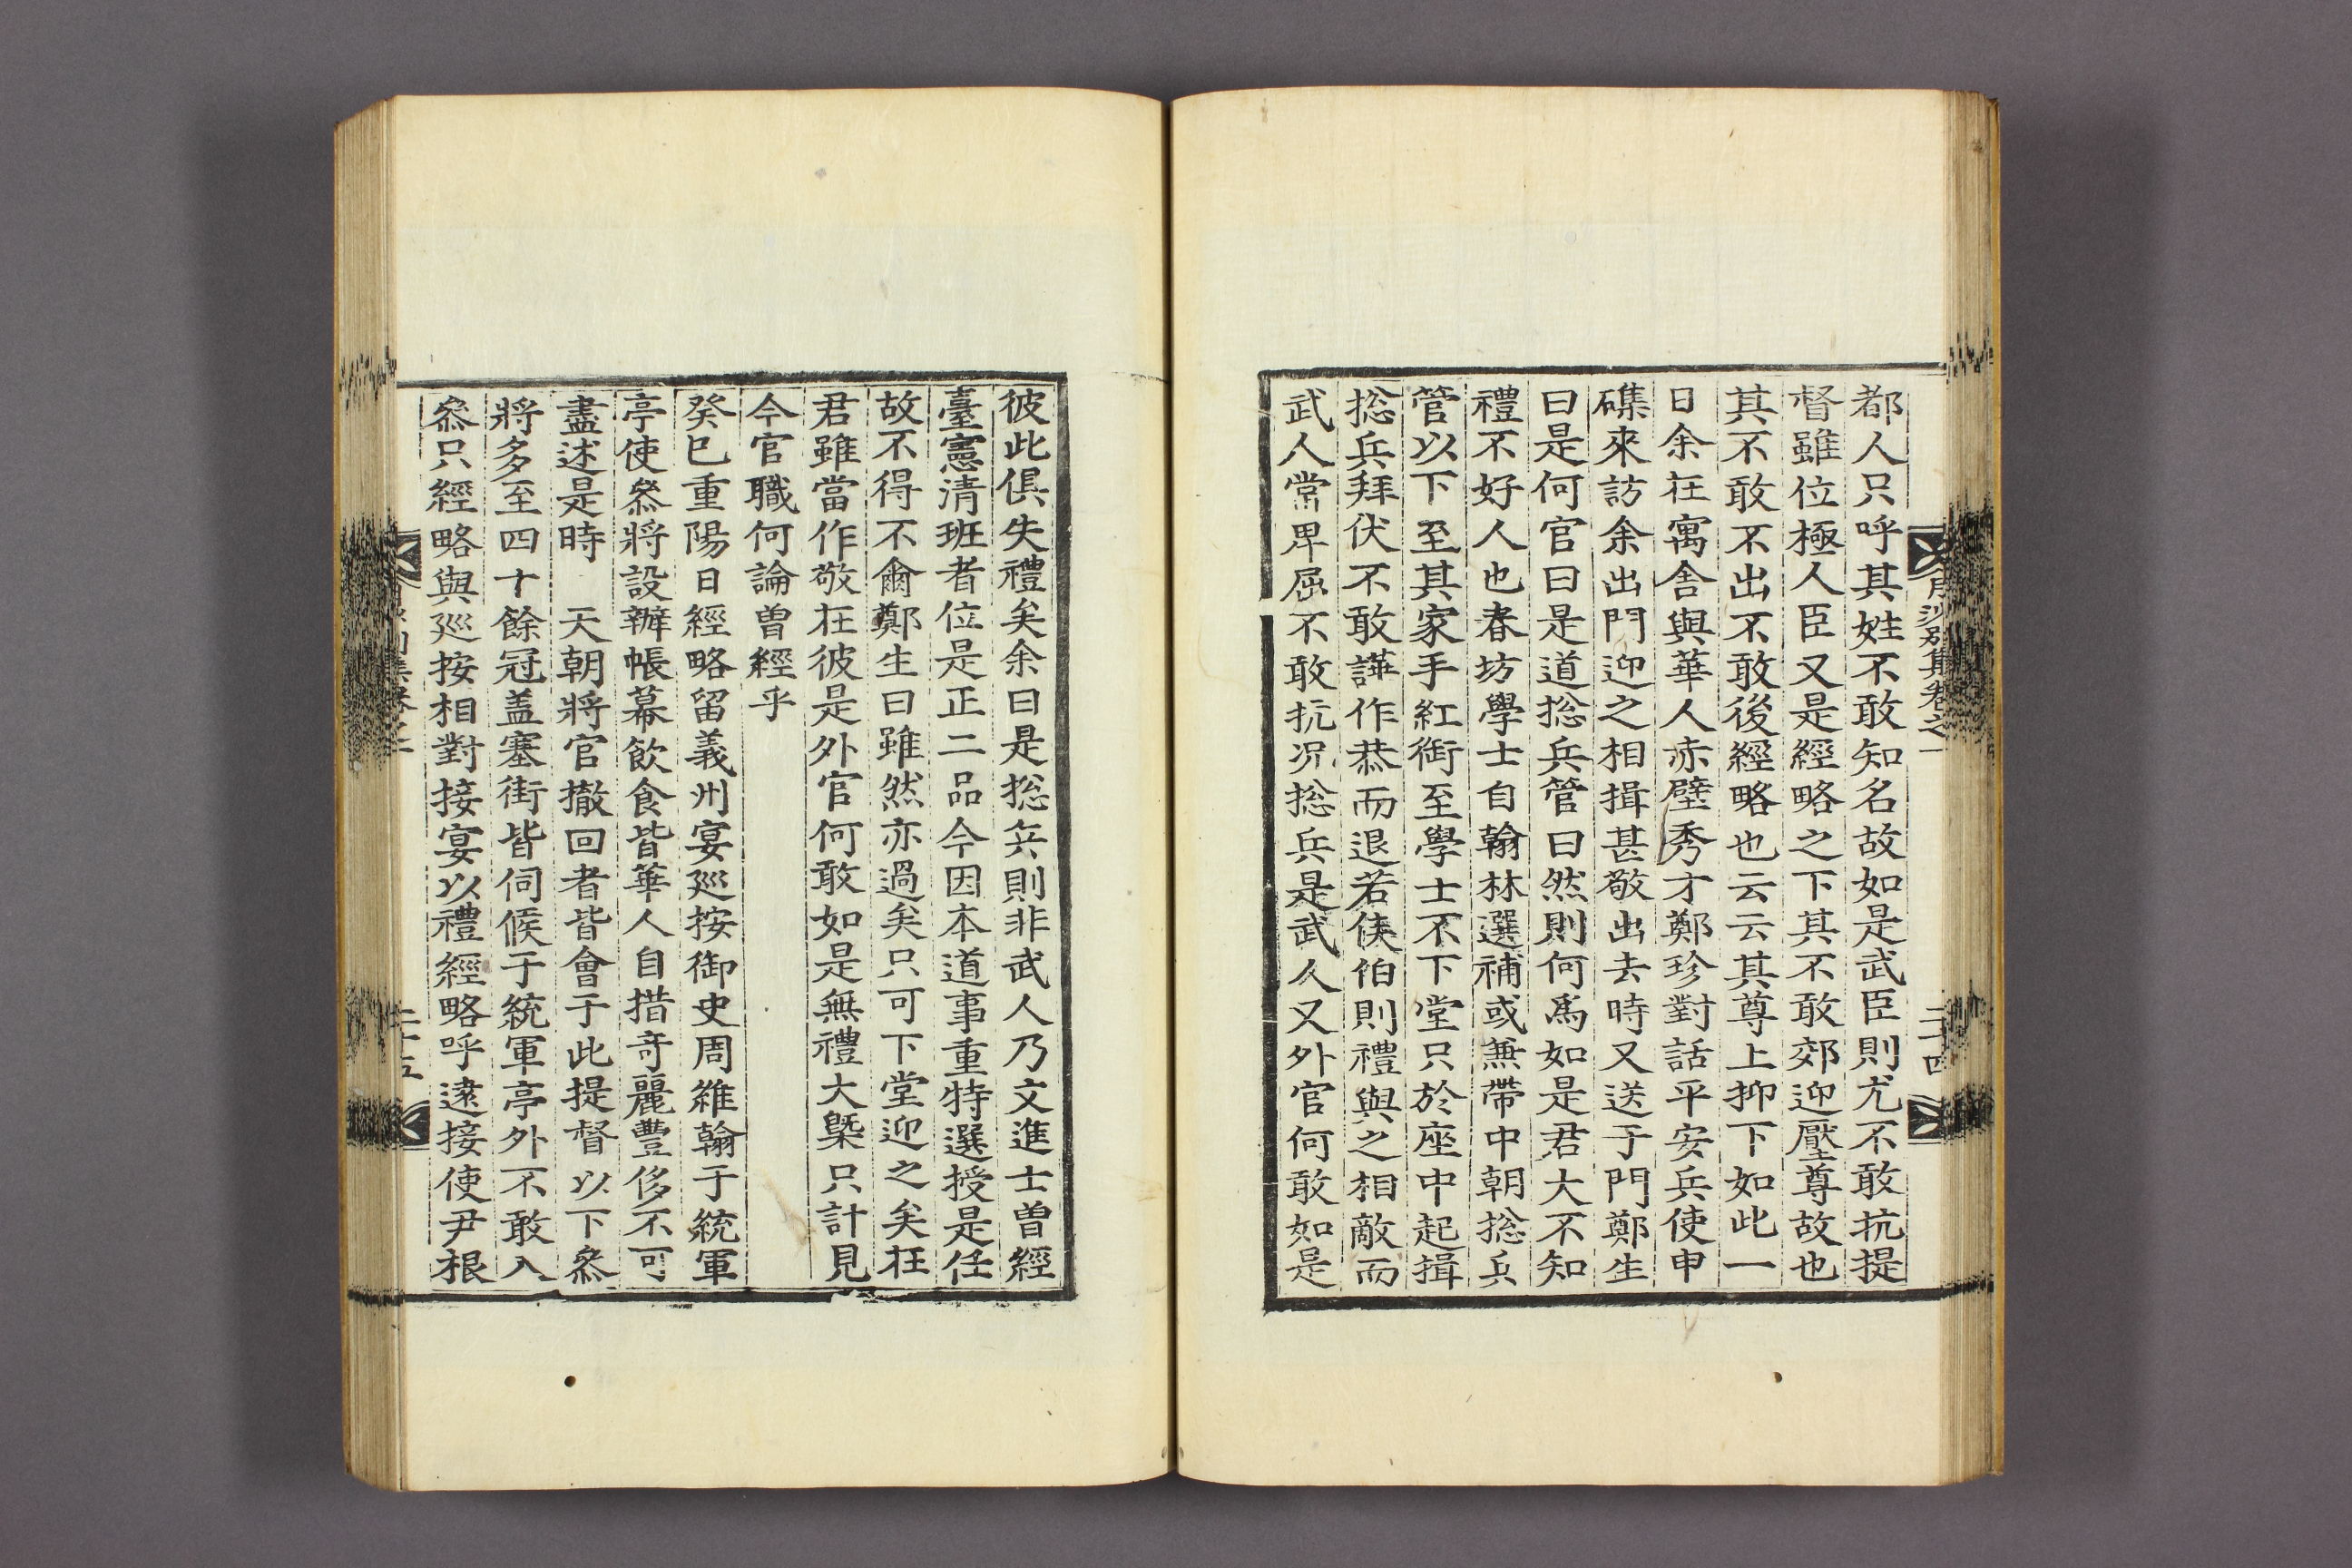 月沙別集卷之一
二十四
都人只呼其姓不敢知名故如是武臣則尤不敢抗提
督雖位極人臣又是經略之下其不敢郊迎壓尊故也
其不敢不出不敢後經略也云云其尊上抑下如此一
日余在寓舍與華人赤壁秀才鄭珍對話平安兵使申
磼來訪余出門迎之相揖甚敬出去時又送于門鄭生
曰是何官曰是道捴兵管曰然則何爲如是君大不知
禮不好人也春坊學士自翰林選補或兼帶中朝捴兵
管以下至其家手紅衘至學士不下堂只於座中起揖
捴兵拜伏不敢譁作恭而退若侯伯則禮與之相敵而
武人常卑屈不敢抗况捴兵是武人又外官何敢如是
彼此俱失禮矣余曰是捴兵則非武人乃文進士曽經
臺憲清班者位是正二品今因本道事重特選授是任
故不得不爾鄭生曰雖然亦過矣只可下堂迎之矣在
君雖當作敬在彼是外官何敢如是無禮大槩只計見
今官職何論曽經乎
癸巳重陽日經略留義州宴廵按御史周維翰于統軍
亭使叅將設辦帳幕飮食皆華人自措奇麗豊侈不可
盡述是時 天朝將官撤回者皆會于此提督以下叅
將多至四十餘冠盖塞街皆伺候于統軍亭外不敢入
叅只經略與廵按相對接宴以禮經略呼遠接使尹根
二十五